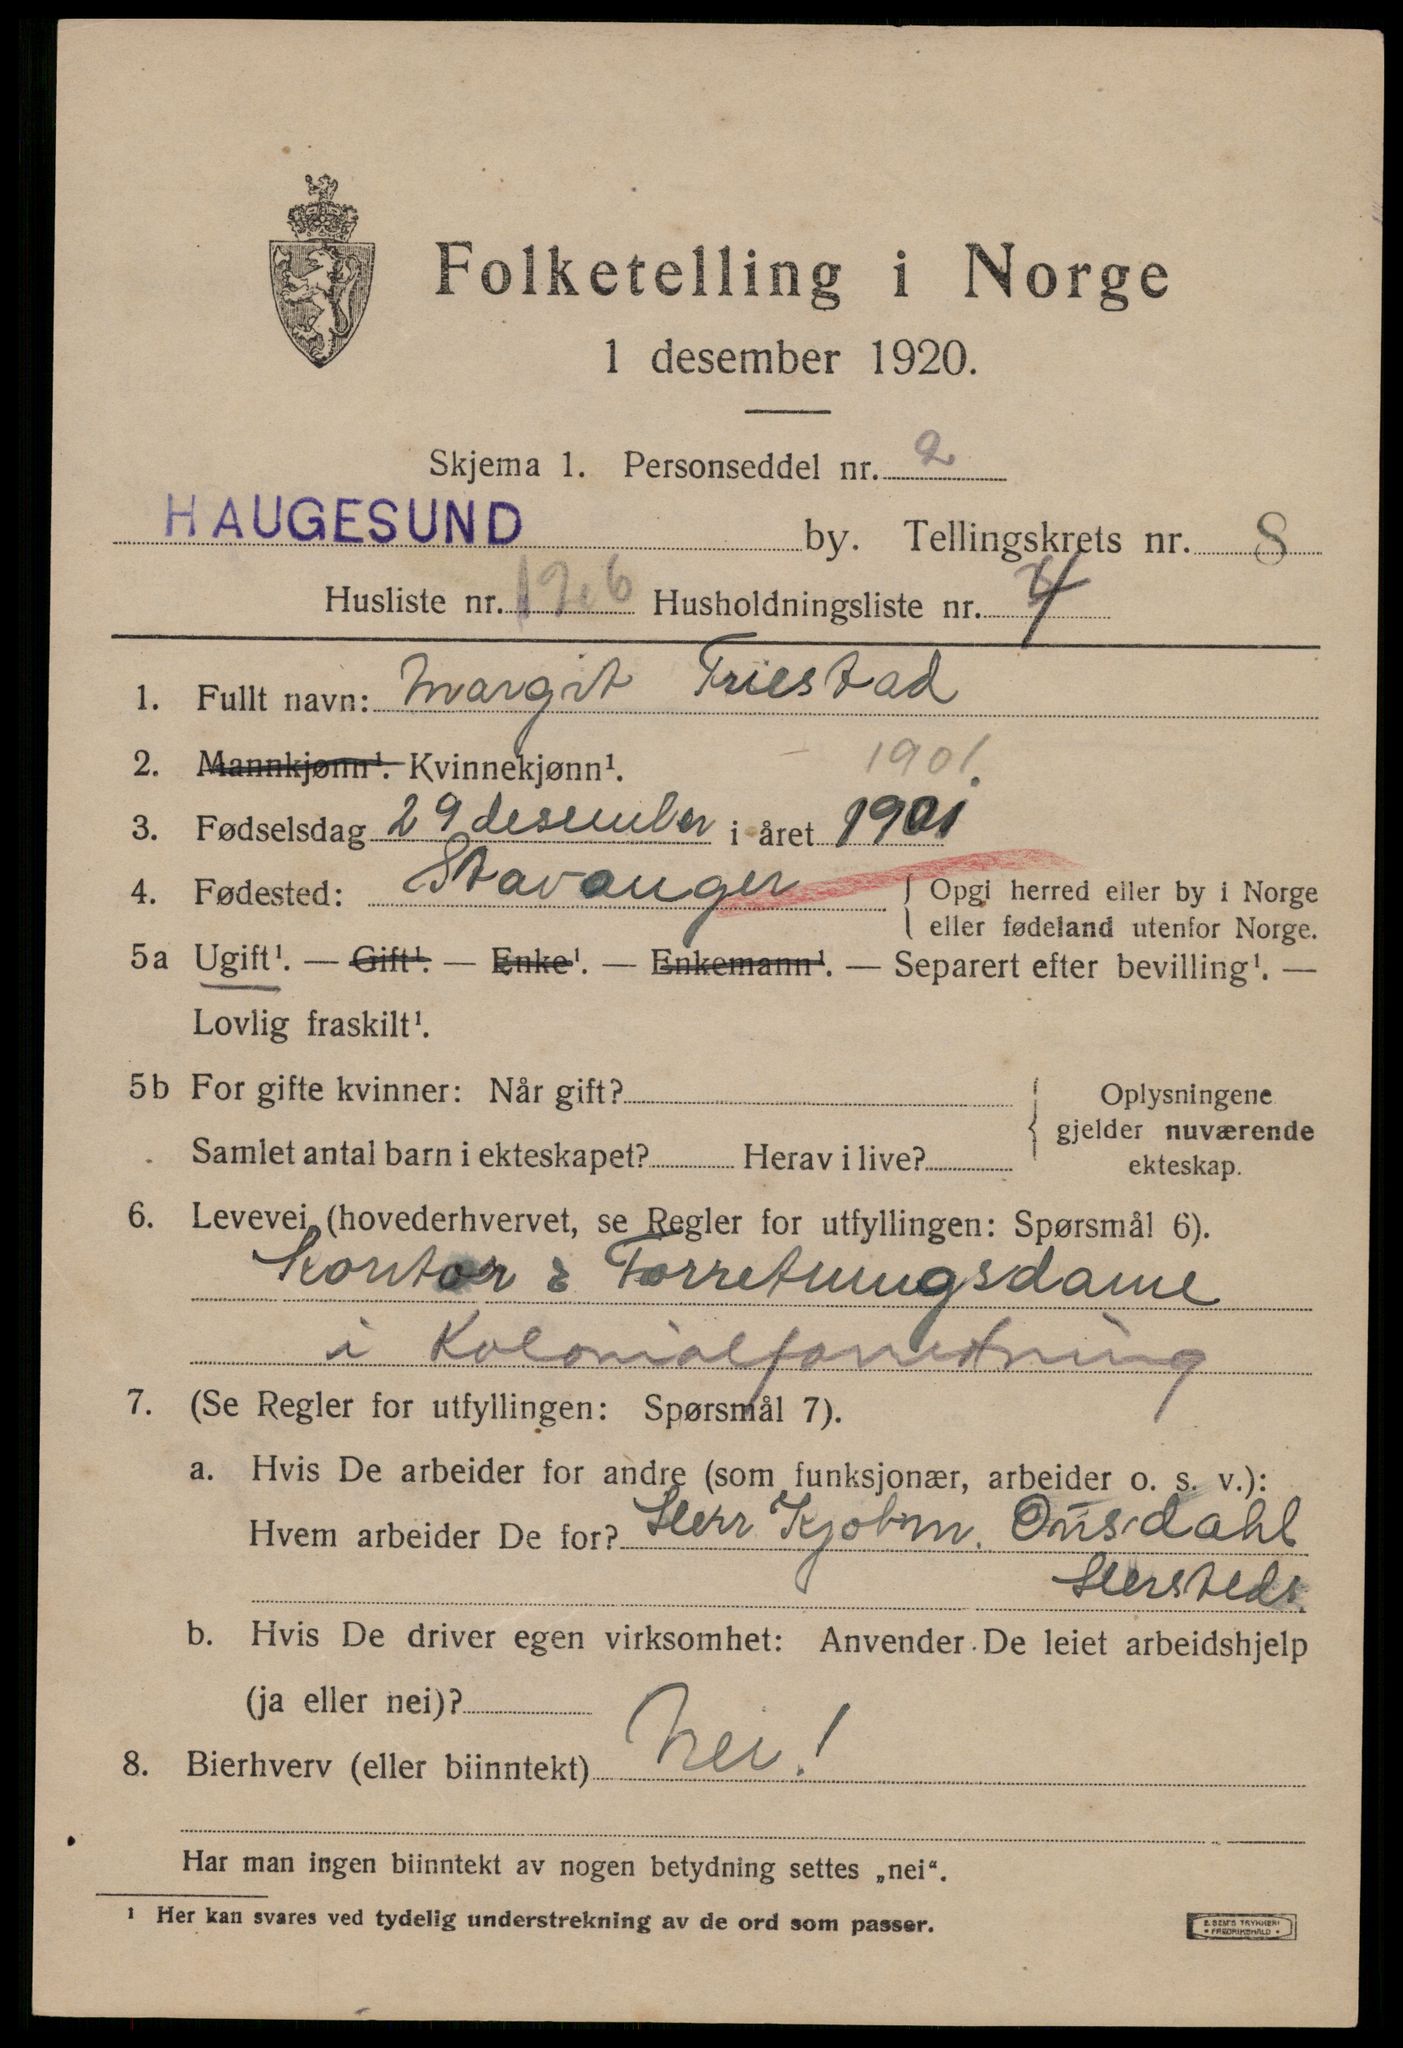 Folketelling i Norge
1 desember 1920.
Skjema 1. Personseddel nr. 2
HAUGESUND by. Tellingskrets nr. 8
Husliste nr. 126 Husholdningsliste nr. 4
1. Fullt navn: Margit Friestad
2. Mannkjønn¹. Kvinnekjønn¹. 1901.
3. Fødselsdag 29 desember i året 1901
4. Fødested: Stavanger { Opgi herred eller by i Norge
eller fødeland utenfor Norge.
5a Ugift¹. — Gift¹. — Enke¹. — Enkemann¹. — Separert efter bevilling¹. —
Lovlig fraskilt¹.
5b For gifte kvinner: Når gift? { Oplysningene
gjelder nuværende
Samlet antal barn i ekteskapet? Herav i live?
ekteskap.
6. Levevei (hovederhvervet, se Regler for utfyllingen: Spørsmål 6).
Kontor & Forretningsdame
i Kolonialforretning
7. (Se Regler for utfyllingen: Spørsmål 7).
a. Hvis De arbeider for andre (som funksjonær, arbeider o. s. v.):
Hvem arbeider De for? Herr Kjøbm. Onsdahl
Hersteds.
b. Hvis De driver egen virksomhet: Anvender De leiet arbeidshjelp
(ja eller nei)?
8. Bierhverv (eller biinntekt) Nei!
Har man ingen biinntekt av nogen betydning settes „nei“.
¹ Her kan svares ved tydelig understrekning av de ord som passer.
E. SEM'S TRYKKERI
• FREDRIKSHALD •